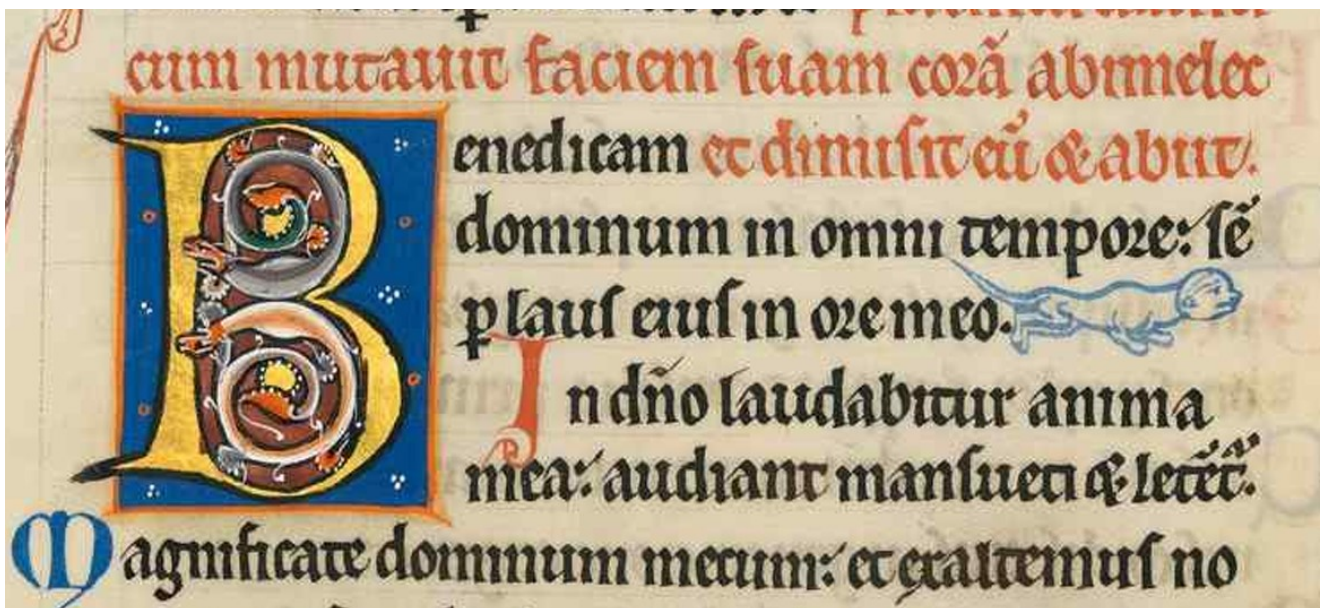 cum mutauit faciem suam corā abimelec
Benedicam et dimisit eū & abiit.
dominum in omni tempore: sē
p laus eius in ore meo.
In dn̄o laudabitur anima
mea: audiant mansueti & letēt̄.
Magnificate dominum mecum: et exaltemus no